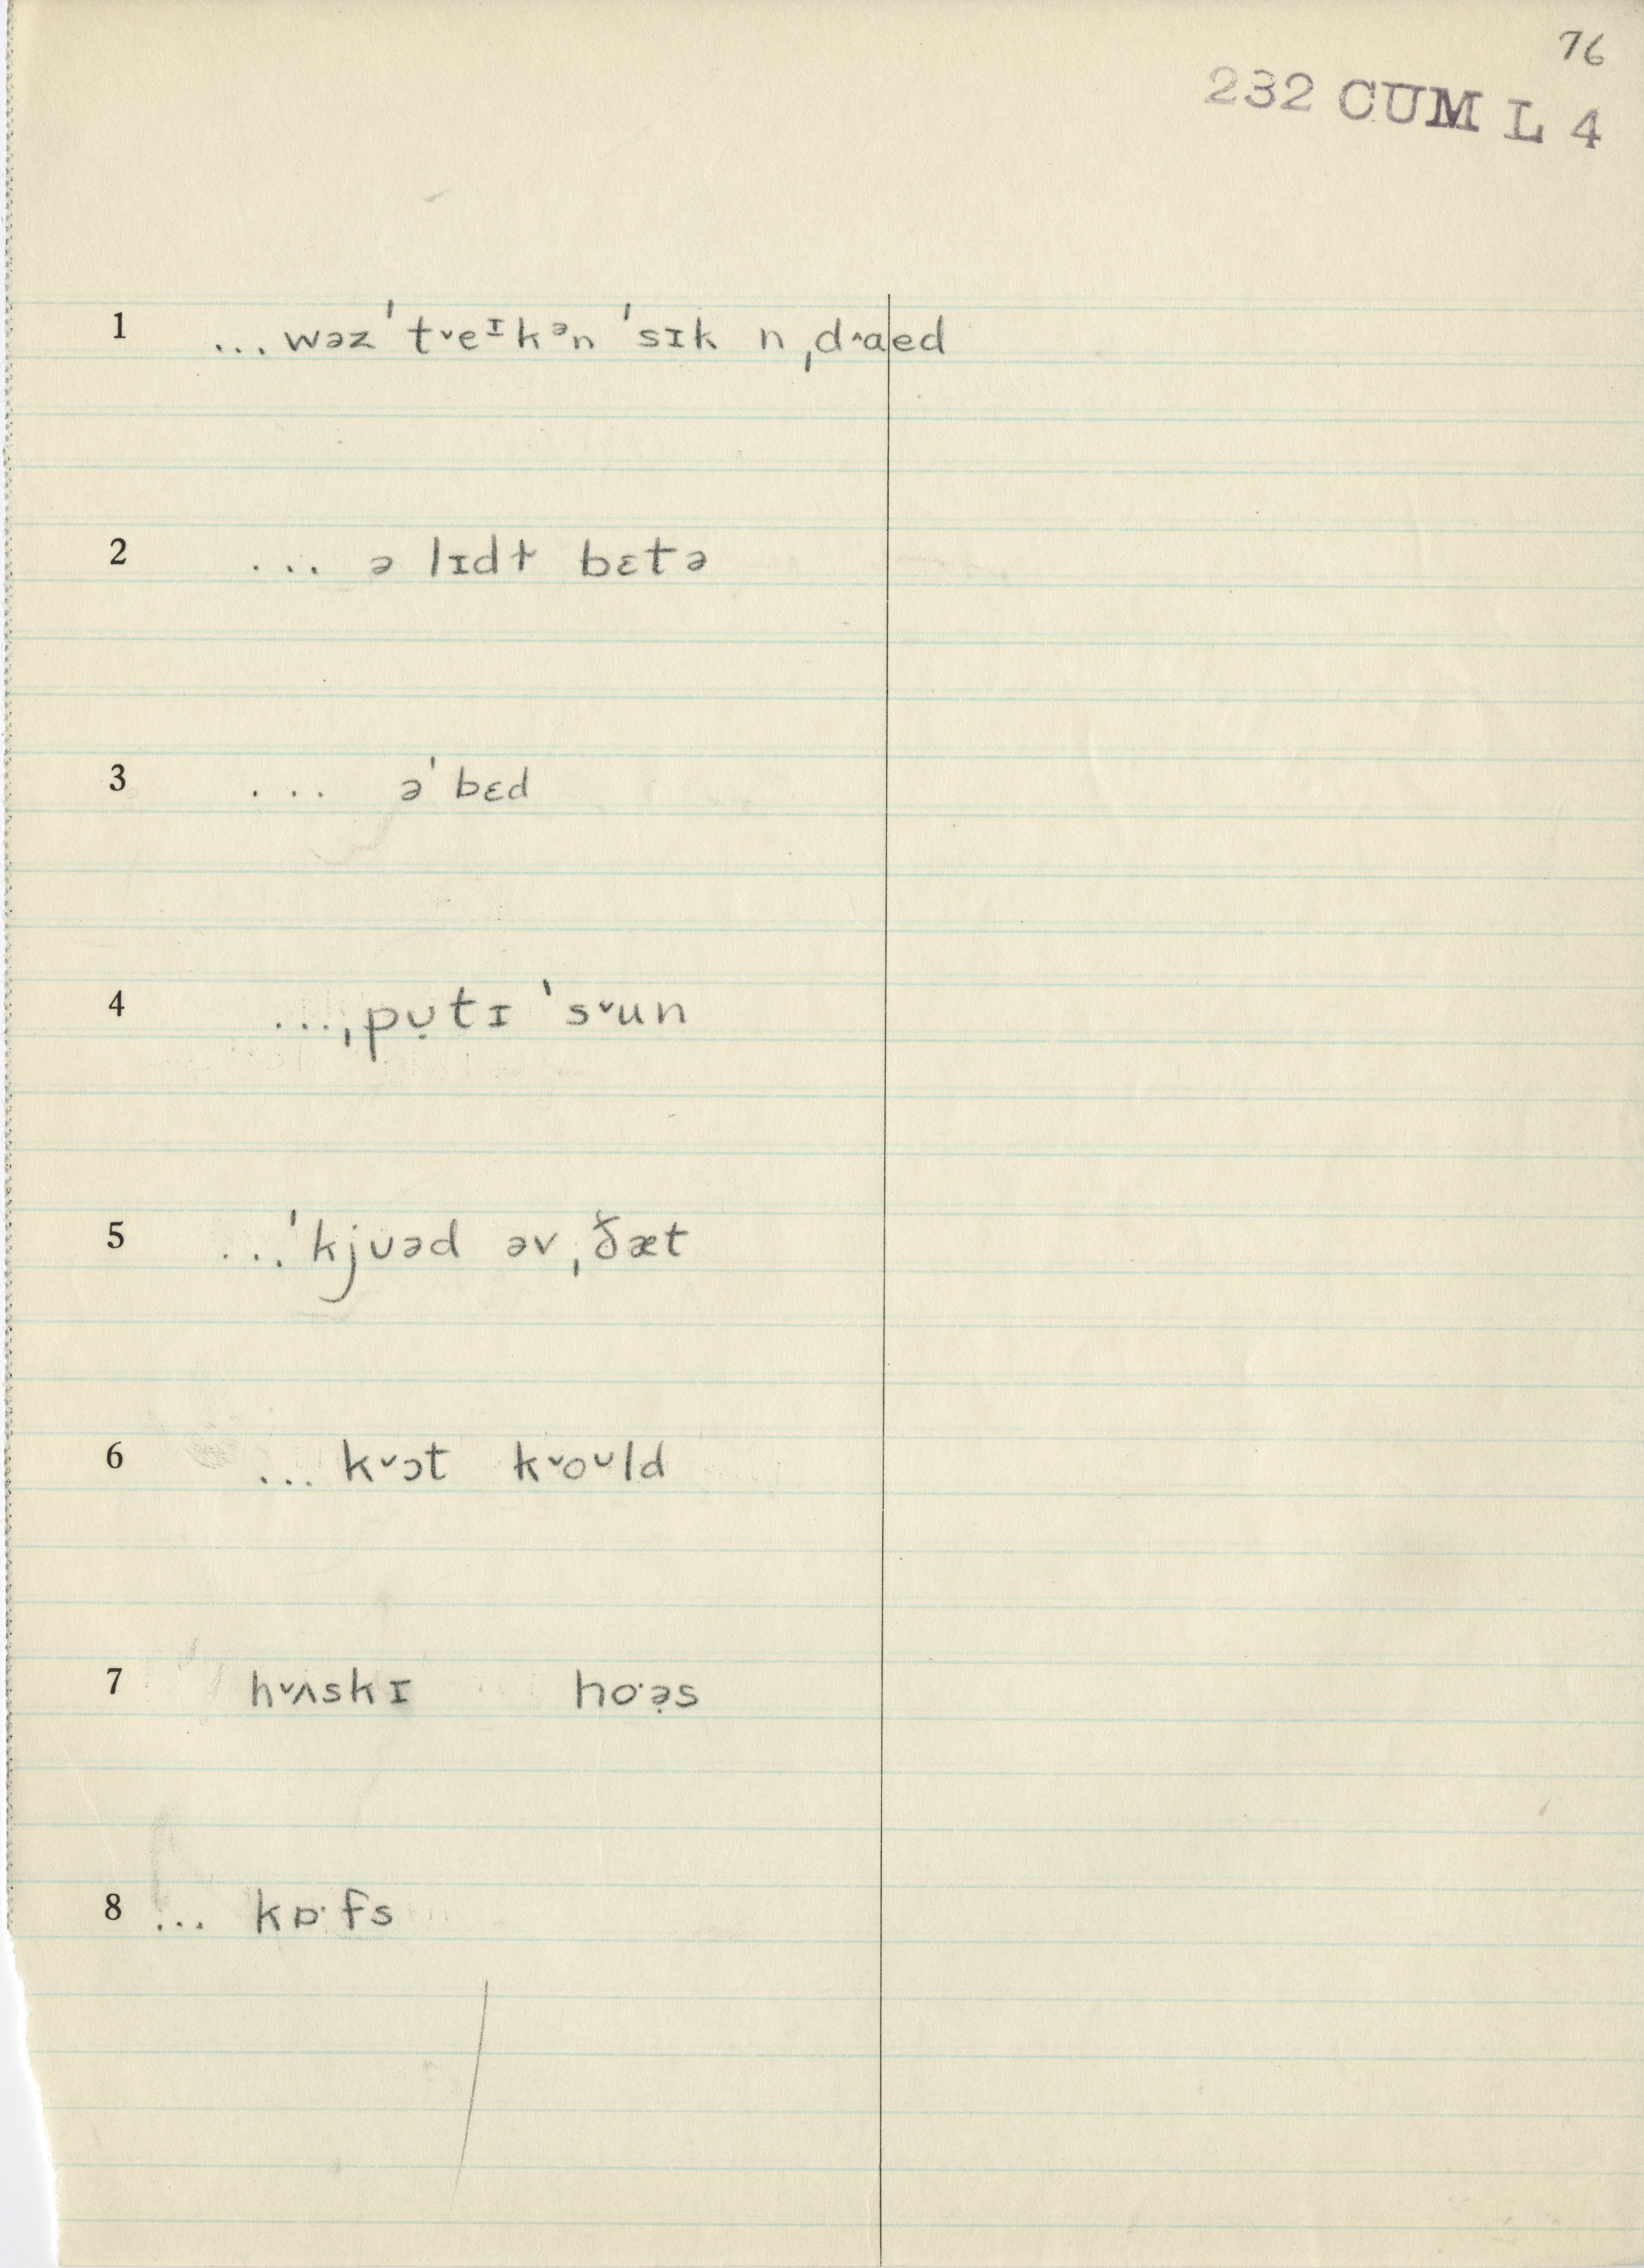 76
232 CUM L 4
1 ...wəz ˈtˇeᶦkᵊn ˈsɪk n ˌdˆaed
2 ... ə lɪdɫ bɛtə
3 ... əˈbɛd
4 ...ˌpʊ̣tɪ ˈsˇun
5 ...ˈkjʊəd əv ˌð̌æt
6 ... kˇɔt kˇoᶸld
7 hˇʌskɪ ho·ə̣s
8 ... kɒ·fs